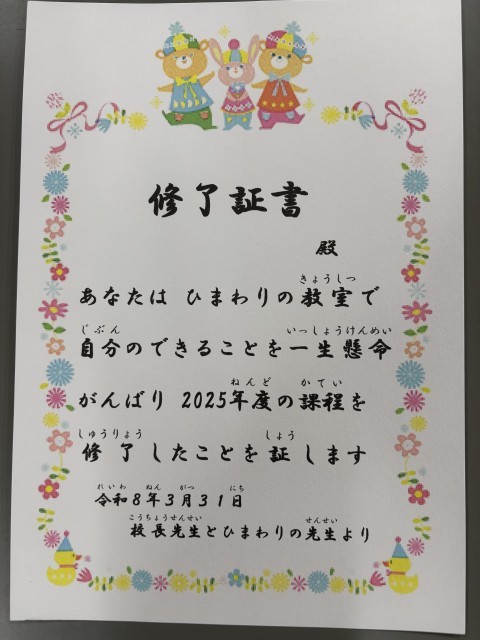 修了証書
殿
きょうしつ
あなたは ひまわりの教室で
じぶん いっしょうけんめい
自分のできることを一生懸命
ねんど かてい
がんばり 2025年度の課程を
しゅうりょう しょう
修了したことを証します
れいわ ねん がつ にち
令和8年3月31日
こうちょうせんせい せんせい
校長先生とひまわりの先生より